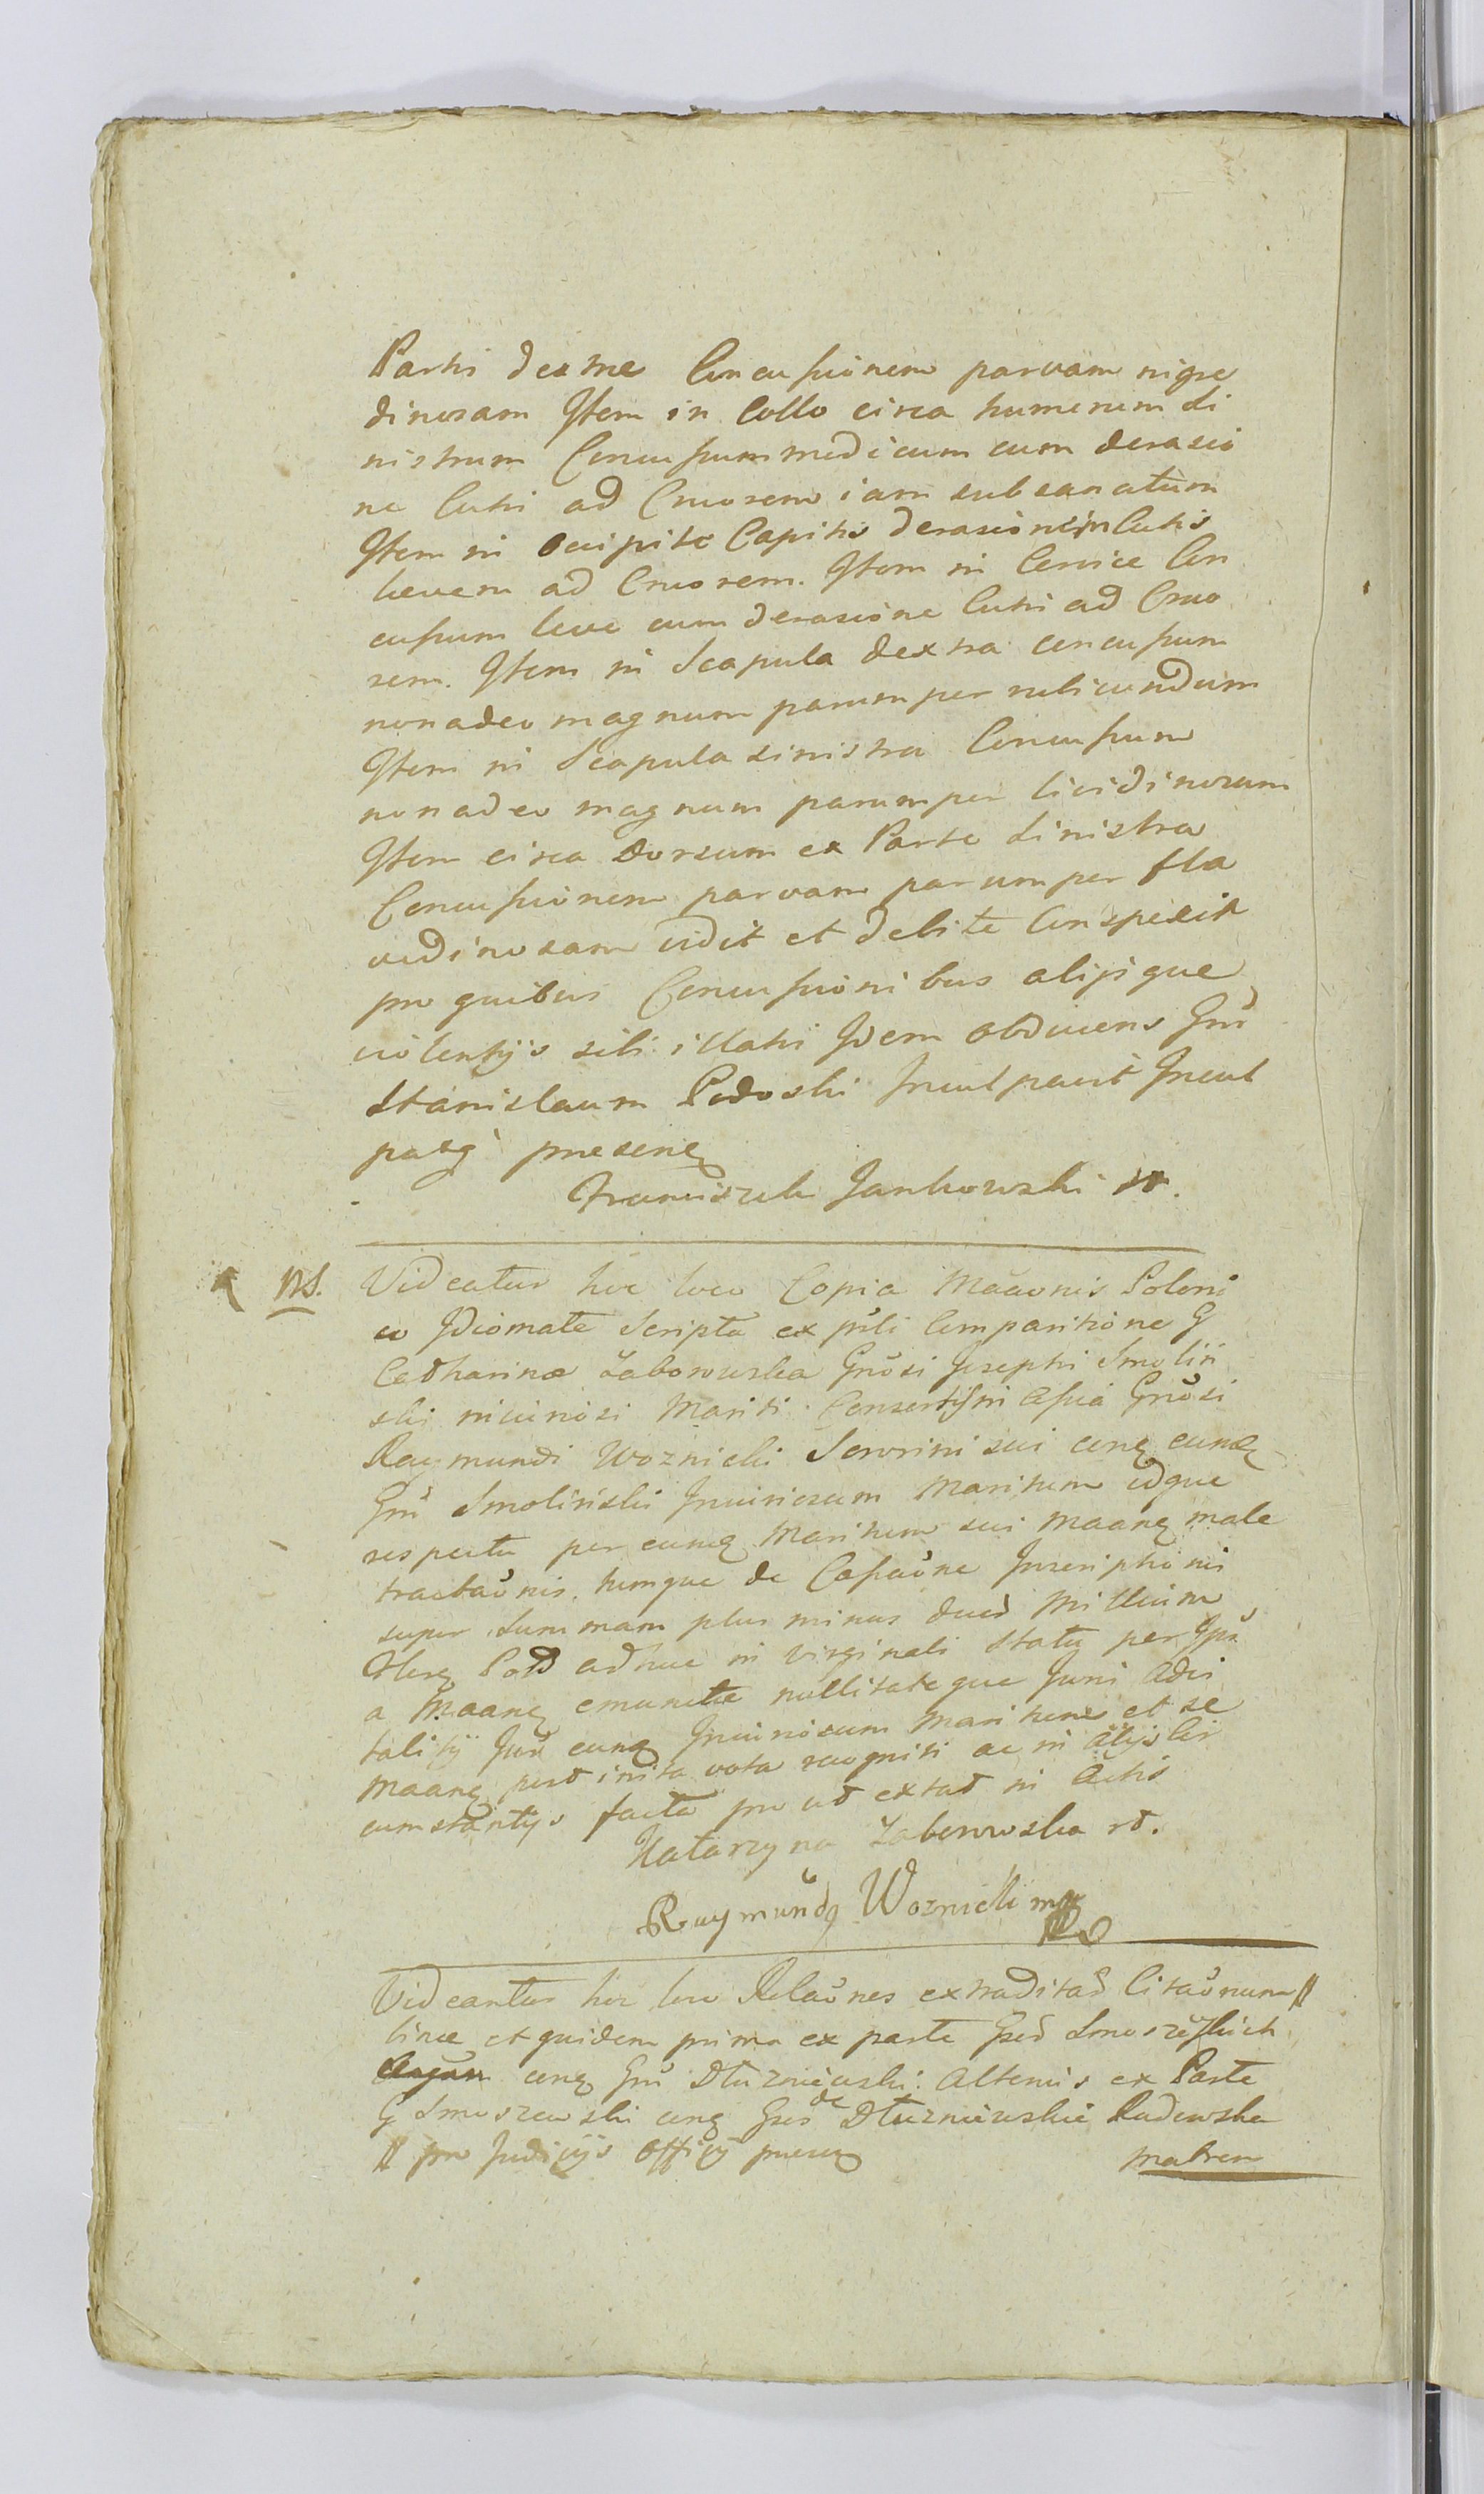 Partis dextrae Concussionem parvam nigre
dinosam Item in Collo circa humerum si
nistrum Concussum medicum cum derasio
ne Cutis ad Cruorem iam subsanatum
Item in Occipite Capitis derasionem Cutis
levem ad Cruorem. Item in Cervice Con
cussum leve cum derasione Cutis ad Cruo
rem. Item in Scapula dextra concussum
non adeo magnum parumper rubicundum
Item in Scapula sinistra Concussum
non adeo magnum parumper lividinosum
Item circa Dorsum ex Parte sinistra
Concussionem parvam parumper fla
vedinosam vidit et debite Conspexit
pro quibus Concussionibus alijsque
violentijs sibi illatis Idem obducens Gnū
Stanislaum Podoski Inculpavit Incul
patq̄ praesenq
Franciszek Jankowski
NB. Videatur hoc loco Copia Māaonis Poloni
co Idiomate Scripta ex pñti Comparitione G
Catharinae Zaborowska Gnōsi Josephi Smoliń
ski iniuriosi Mariti Consortis in Assīa Gnōsi
Raymundi Woznicki Sororini sui conq eunq
Gnū Smoliński Iniuriosum Maritum idque
respectu per eunq Maritum sui Maanq male
tractaōnis, tumque de Cassaōne Inscriptionis
super Summam plus minus Millium
adhuc in virginali Statu per Ipsā
a Maanq nullitateque Juris
eunq Iniuriosum Maritum et se
Maanq post inita vota recogniti ac in alijs Cir
cumstantijs facta pro ut extat in Actis
Katarzyna Zaborowska
Raymundq Woznicki mp
Videantur hic loco Relaōnes extraditaē Citaōnum //
binae et quidem prima ex parte
conq Gnū Dłuzniewski. Alterius ex Parte
G Smoszewski conq de Dłuzniewskie Radowska
// pro Judicijs Officij praesq matrem